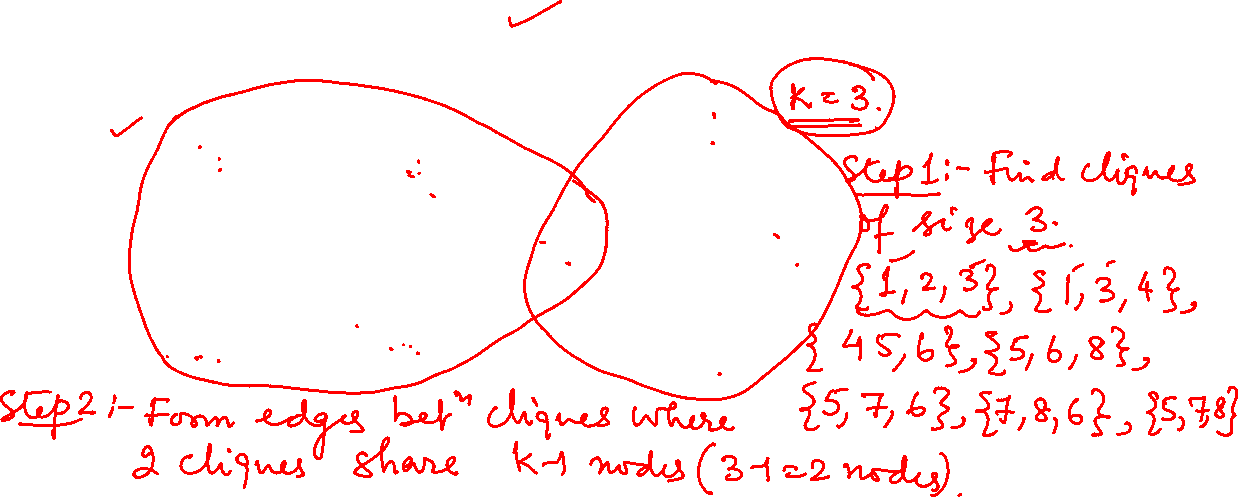 K = 3.
Step 1 :- Find cliques
of size 3.
{1, 2, 3}, {1, 3, 4},
{4 5, 6}, {5, 6, 8},
{5, 7, 6}, {7, 8, 6}, {5, 7, 8}
Step 2 :- Form edges betⁿ cliques where
2 cliques share K-1 nodes (3-1=2 nodes).